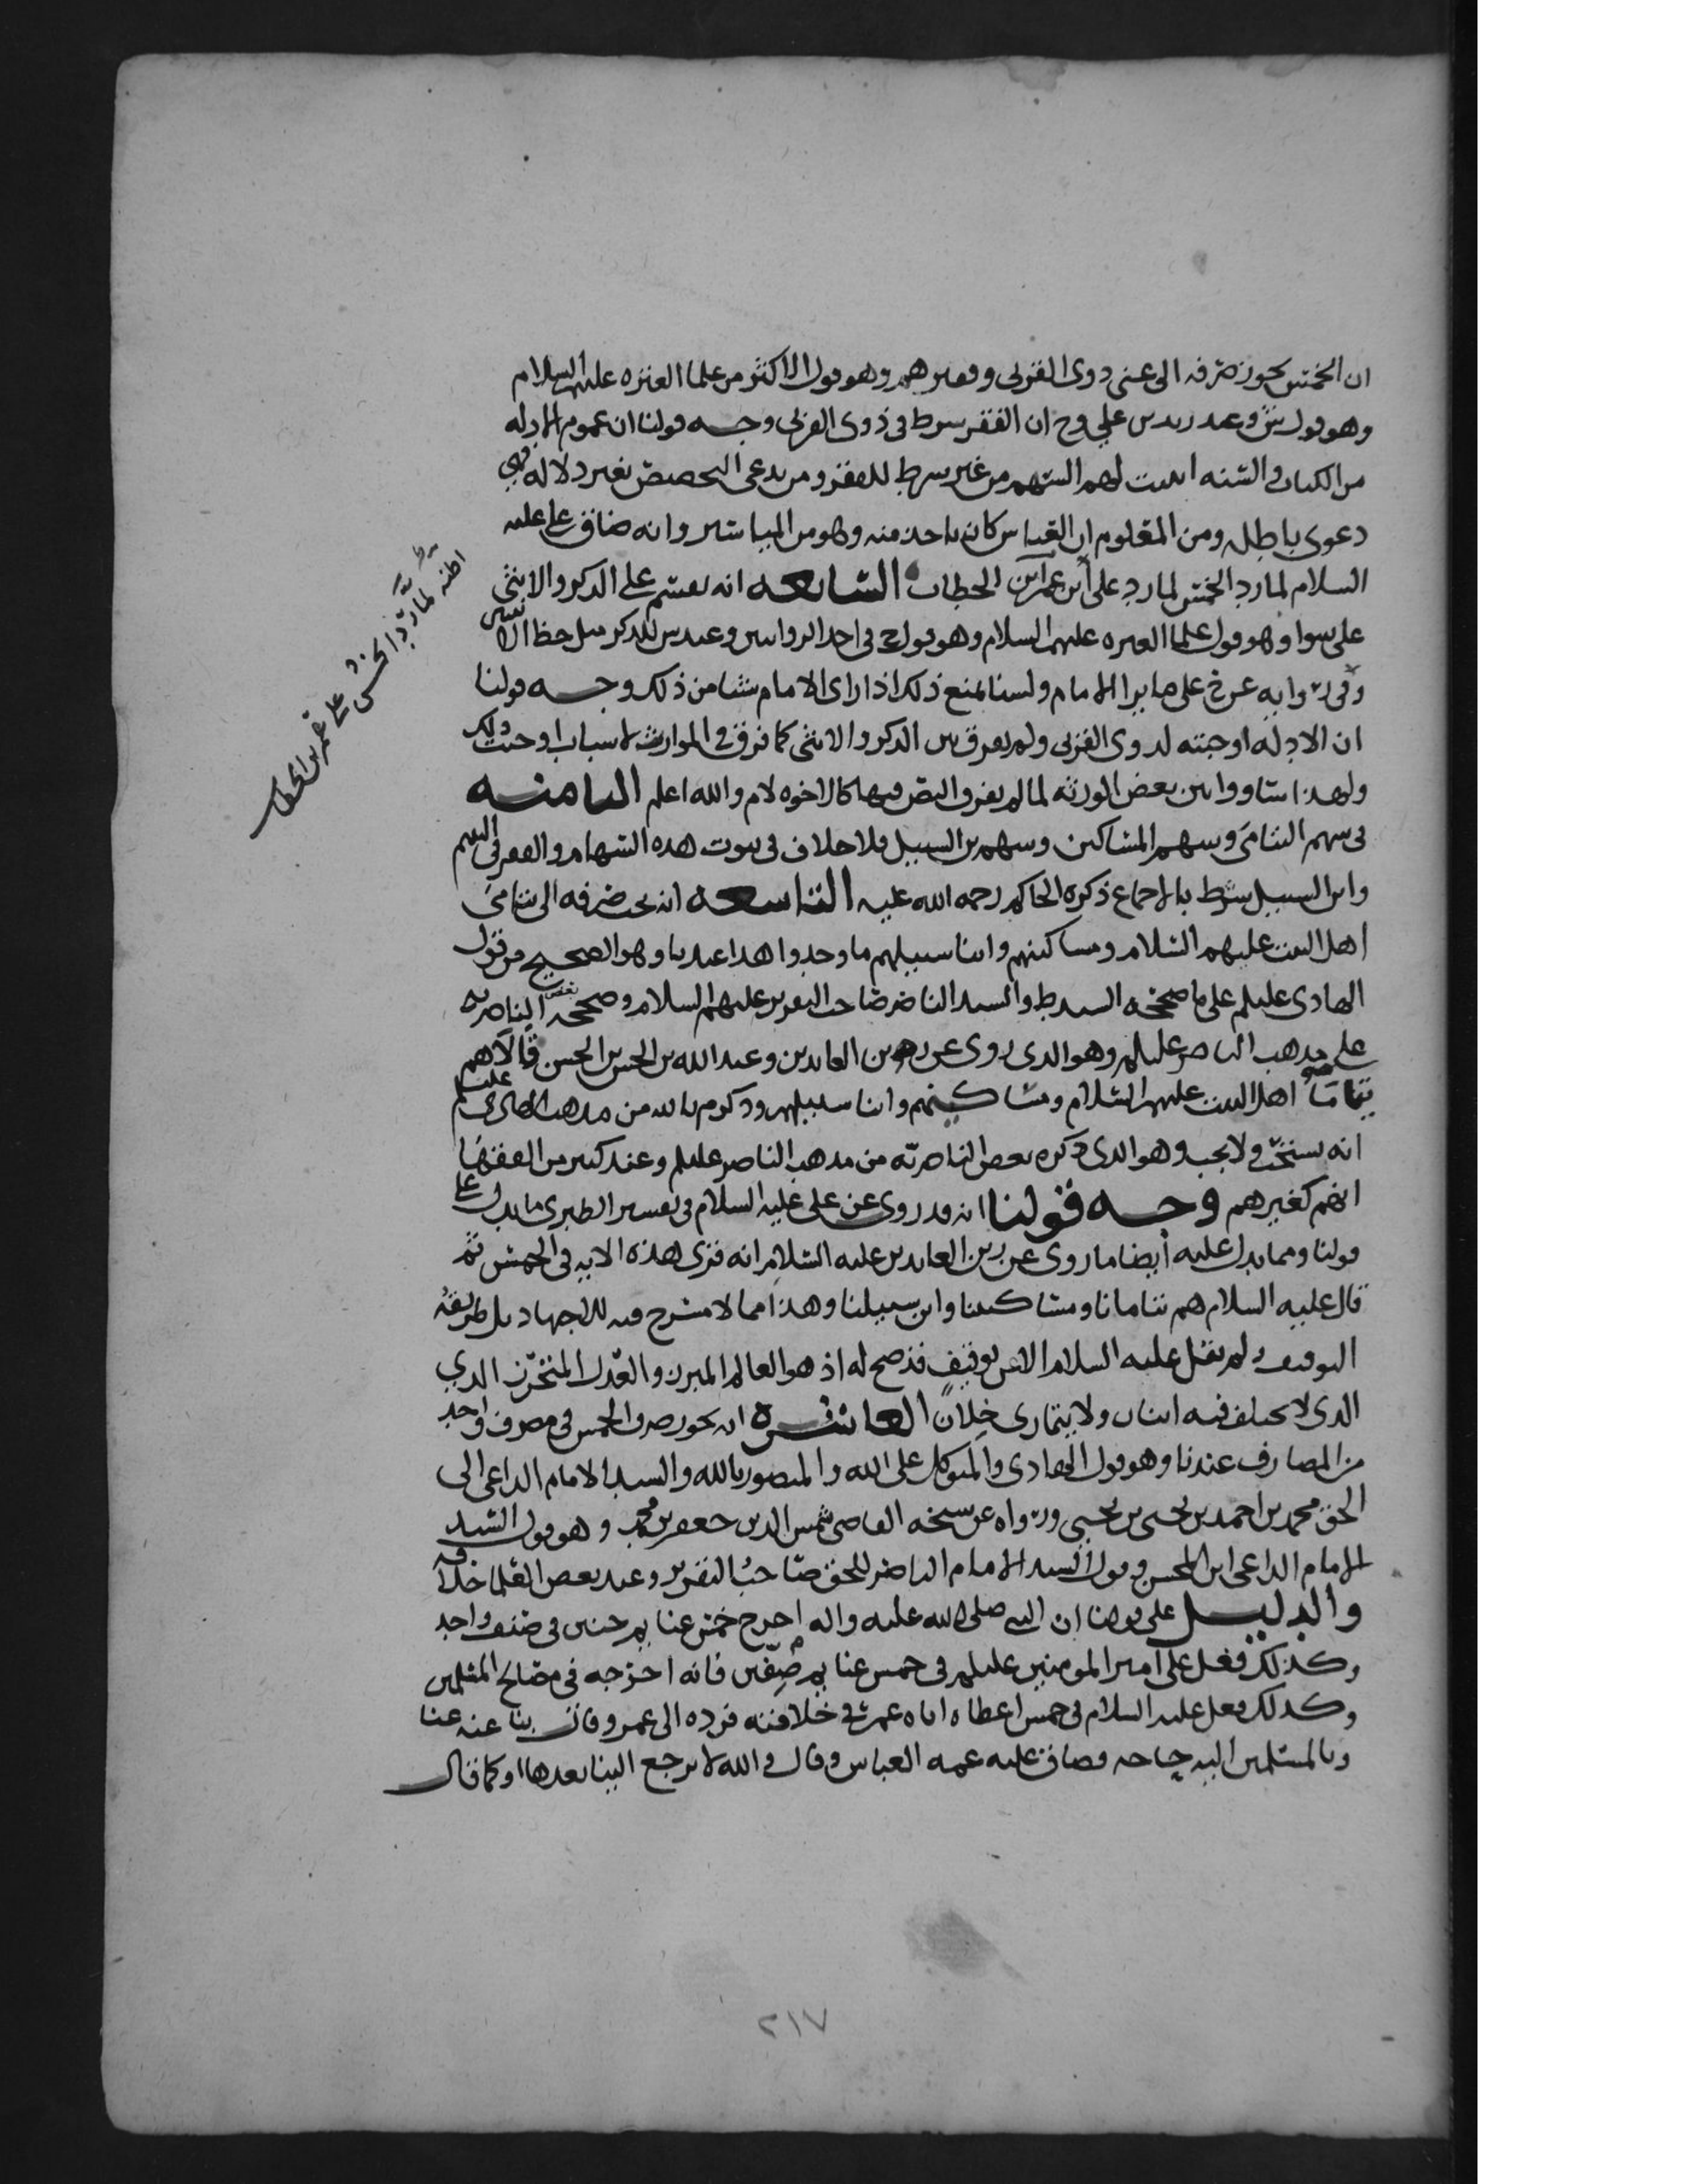 ان الخمس يجوز صرفه الى غني ذوى القربى وفقيرهم وهو قول الاكثر من علما العتره عليهم السلام
وهو قول ش وعند زيد بن علي وح ان الفقر شرط في ذوى القربى وجه قولنا ان عموم الادله
من الكتاب والسنه اثبت لهم السهم من غير شرط للفقر ومن يدعى التخصيص بغير دلاله فهي
دعوى باطل ومن المعلوم ان العباس كان ياخذ منه وهو من المياسير وانه ضاق على عليه
السلام لما رد الخمس لما رد على ابن عمر ابن الخطاب السابعه انه يقسم على الذكر والانثى
على سوا وهو قول علما العتره عليهم السلام وهو قول ح في احد الروايتين وعند ش للذكر مثل حظ الانثيين
وفي روايه عن ح على ما يرا الامام ولسنا نمنع ذلك اذا راى الامام شيا من ذلك وجه قولنا
ان الادله اوجبته لذوى القربى ولم يفرق بين الذكر والانثى كما فرق في المواريث لاسباب اوجبت ذلك
ولهذا ساووا بين بعض الورثه لما لم يفرق النص فيها كالاخوه لام والله اعلم الثامنه
في سهم اليتامى وسهم المساكين وسهم بن السبيل فلا خلاف في ثبوت هذه السهام والفقر في اليتيم
وابن السبيل شرط بالاجماع ذكره الحاكم رحمه الله عليه التاسعه انه يجب صرفه الى يتامى
اهل البيت عليهم السلام ومساكينهم وابنا سبيلهم ما وجدوا هذا عندنا وهو الصحيح من قول
الهادى عليلم على ما صححه السيد ط والسيد الناصر صاحب التقرير عليهم السلام وصححه بعض الناصريه
على مذهب الناصر عليلم وهو الذى روى عن زين العابدين وعبد الله بن الحسن بن الحسن قالا هم
يتاما اهل البيت عليهم السلام ومساكينهم وابنا سبيلهم وذكر م بالله من مذهب الهادى عليلم
انه يستحب ولا يجب وهو الذى ذكره بعض الناصريه من مذهب الناصر عليلم وعند كثير من الفقها
انهم كغيرهم وجه قولنا انه قد روى عن على عليه السلام في تفسير الطبرى ما يدل على
قولنا ومما يدل عليه أيضا ما روى عن زين العابدين عليه السلام انه قرى هذه الايه في الخمس ثم
قال عليه السلام هم يتامانا ومساكيننا وابن سبيلنا وهذا مما لا مسرح فيه للاجتهاد بل طريقه
التوقيف ولم يقل عليه السلام الا عن توقيف قد صح له اذ هو العالم المبرز والعدل المتحرز الذي
الذى لا يختلف فيه اثنان ولا يتمارى خلان العاشره انه يجوز صرف الخمس في مصرف واحد
من المصارف عندنا وهو قول الهادى والمتوكل على الله والمنصور بالله والسيد الامام الداعى الى
الحق محمد بن احمد بن يحيى بن يحيى ورواه عن شيخه القاضى شمس الدين جعفر بن محمد وهو قول السيد
الامام الداعى ابن المحسن وقول السيد الامام الناصر للحق صاحب التقرير وعند بعض العلما خلافه
والدليل على قولنا ان النبي صلى الله عليه واله اخرج خمس غنايم حنين في صنف واحد
وكذلك فعل على امير المومنين عليلم في خمس غنايم صفين فانه اخرجه في مصالح المسلمين
وكذلك فعل عليه السلام في خمس اعطاه اياه عمر في خلافته فرده الى عمر وقال بنا عنه غنا
وبالمسلمين اليه حاجه فضاق عليه عمه العباس وقال والله لا يرجع الينا بعدها او كما قال
اظنه لما رد الخمس على عمر بن الخطاب
٢١٧